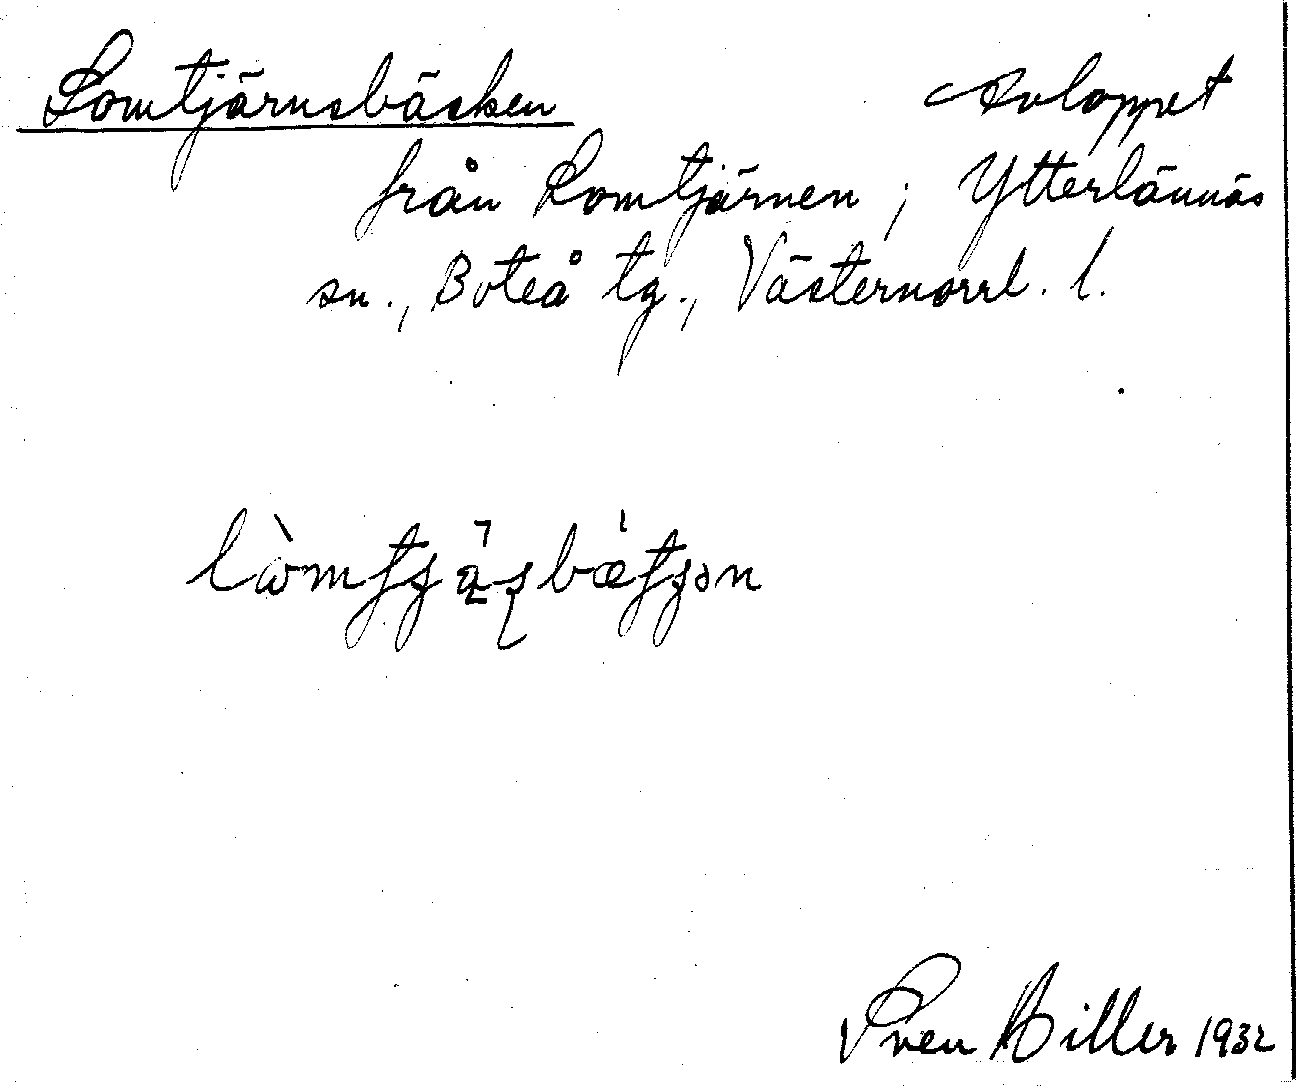 Lomtjärnsbäcken Avloppet
från Lomtjärnen; Ytterlännäs
sn., Boteå tg., Västernorrl. l.
Sven Hiller 1932